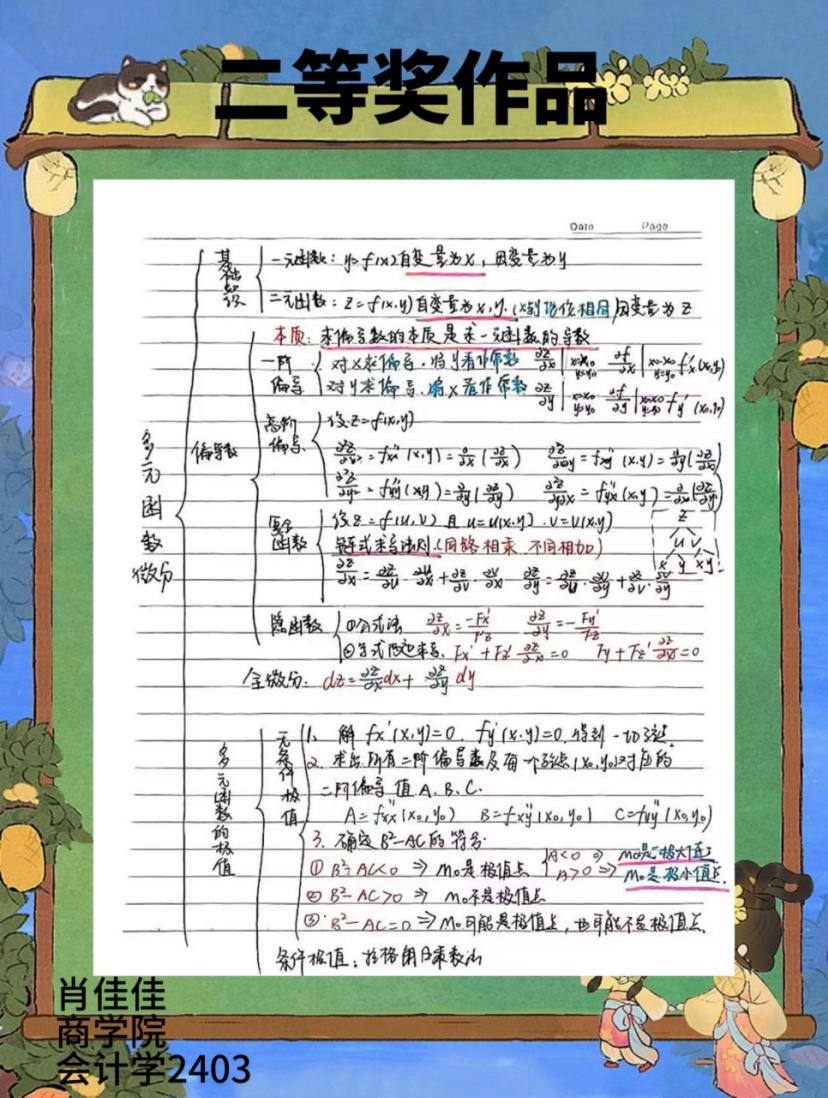 二等奖作品
Date Page
多元函数微分
基础知识
一元函数：y=f(x)自变量为x，因变量为y
二元函数：z=f(x,y)自变量为x,y.(x,y到地位相同)因变量为z
偏导数
本质：求偏导数的本质是求一元函数的导数
一阶偏导
对x求偏导，将y看作常数 ∂z/∂x|x=x₀ y=y₀ ∂f/∂x|x=x₀ y=y₀ f'x(x₀,y₀)
对y求偏导，将x看作常数 ∂z/∂y|x=x₀ y=y₀ ∂f/∂y|x=x₀ y=y₀ f'y(x₀,y₀)
高阶偏导
设z=f(x,y)
∂²z/∂x²=fxx''(x,y)=∂/∂x(∂z/∂x) ∂²z/∂x∂y=fxy''(x,y)=∂/∂y(∂z/∂x)
∂²z/∂y²=fyy''(x,y)=∂/∂y(∂z/∂y) ∂²z/∂y∂x=fyx''(x,y)=∂/∂x(∂z/∂y)
复合函数
设z=f(u,v)且u=u(x,y).v=v(x,y)
链式求导法则(同路相乘 不同相加)
z
u v
x y x y
∂z/∂x=∂z/∂u·∂u/∂x+∂z/∂v·∂v/∂x ∂z/∂y=∂z/∂u·∂u/∂y+∂z/∂v·∂v/∂y
隐函数
①公式法 ∂z/∂x=-Fx'/Fz' ∂z/∂y=-Fy'/Fz
②等式两边求导. Fx'+Fz'∂z/∂x=0 Fy+Fz'∂z/∂x=0
全微分：dz=∂z/∂x dx+∂z/∂y dy
多元函数的极值
无条件极值
1. 解fx'(x,y)=0.fy'(x,y)=0.得到一切驻点.
2. 求出所有二阶偏导数及每个驻点(x₀,y₀)对应的
二阶偏导值A.B.C.
A=fxx''(x₀,y₀) B=fxy''(x₀,y₀) C=fyy''(x₀,y₀)
3. 确定B²-AC的符号.
①B²-AC<0⇒M₀是极值点 A<0⇒M₀是极大值点
A>0⇒M₀是极小值点.
②B²-AC>0⇒M₀不是极值点
③B²-AC=0⇒M₀可能是极值点，也可能不是极值点.
条件极值：拉格朗日乘数法
肖佳佳
商学院
会计学2403